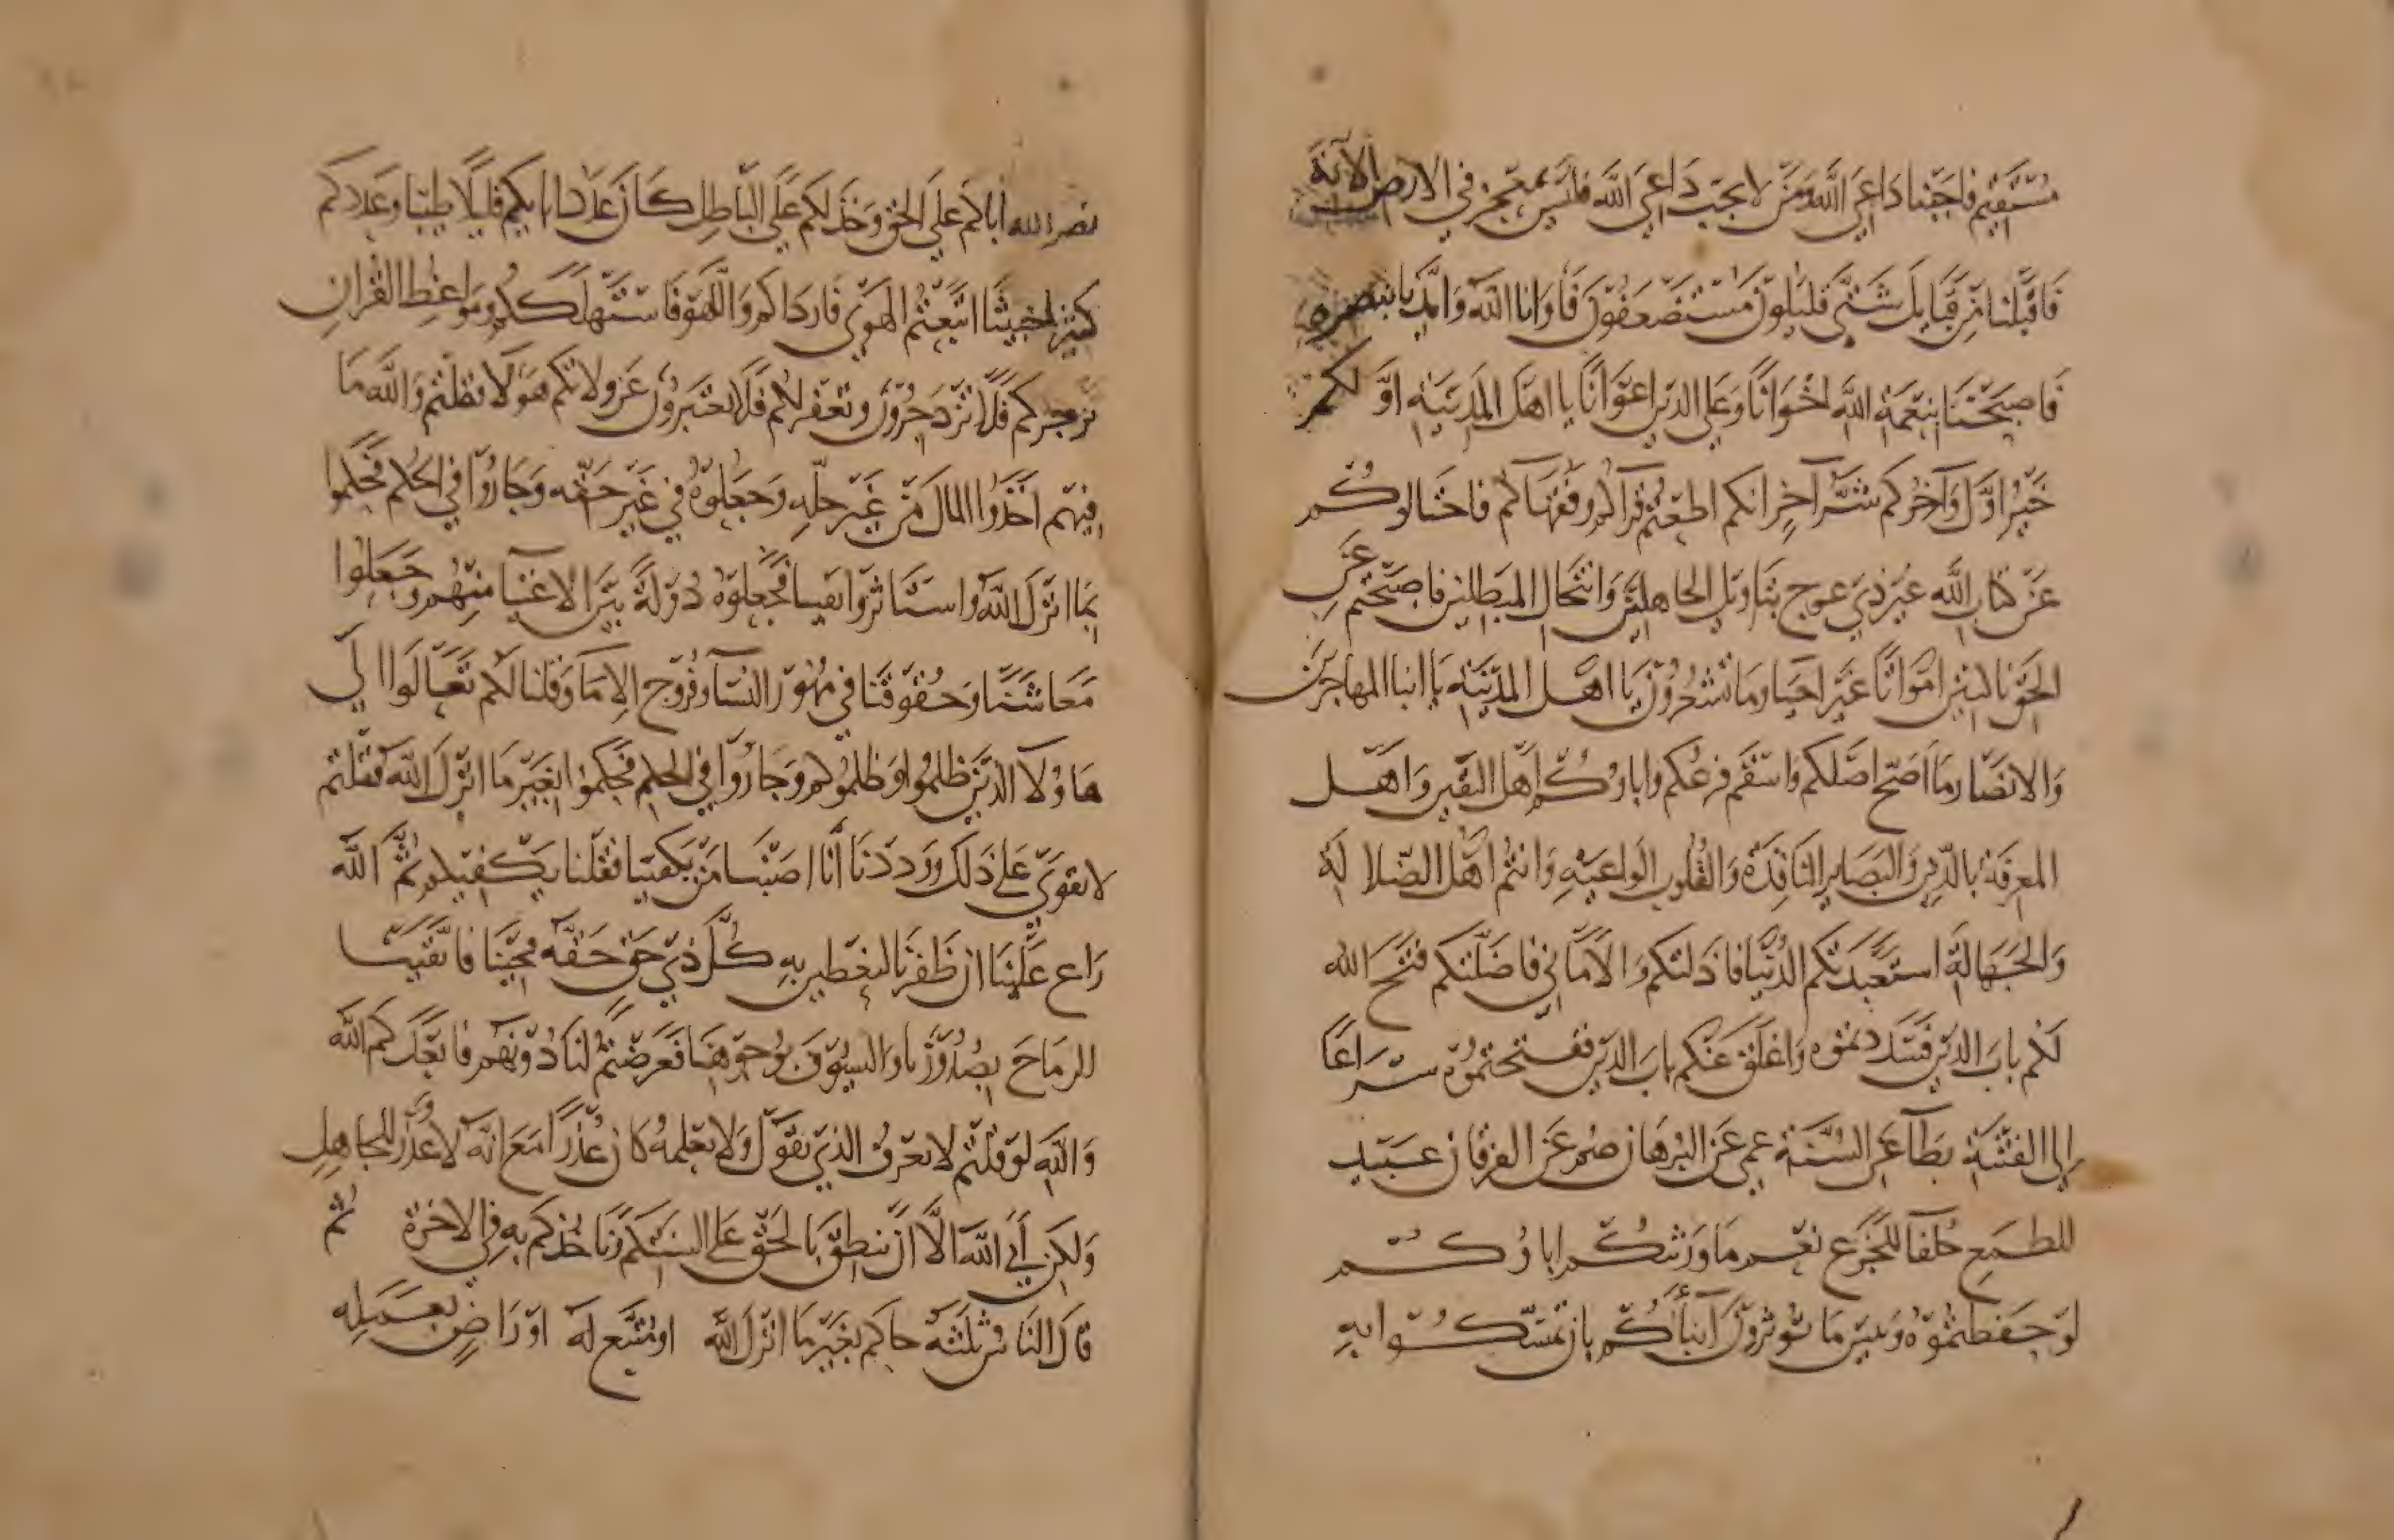 مستقيم فاجبنا داعي الله ومن لا يجب داعي الله فليس بمعجز في الارض الآية
فاقبلنا من قبايل شتى قليلون مستضعفون فاوانا الله وايدنا بنصره
فاصبحنا بنعمة الله اخوانا وعلى الدين اعوانا يا اهل المدينة اولكم
خير اول وآخركم شر آخر انكم اطعتم قراكم وفقهاكم فاختالوكم
عن كتاب الله غير ذي عوج بتاويل الجاهلين وانتحال المبطلين فاصبحتم عن
الحق ناكبين امواتا غير احيا وما تشعرون يا اهل المدينة يا ابنا المهاجرين
والانصار ما اصح اصلكم واسقم فرعكم واباوكم اهل اليقين واهل
المعرفة بالدين والبصاير النافذة والقلوب الواعية وانتم اهل الضلالة
والجهالة استعبدتكم الدنيا فاذلتكم والاماني فاضلتكم فتح الله
لكم باب الدين فسددتموه واغلق عنكم باب الدين ففتحتموه سراعا
الى الفتنة بطآ عن السنة عمي عن البرهان صم عن العرفان عبيد
للطمع حلفا للجزع نعم ما ورثكم اباوكم
لو حفظتموه وبيس ما تورثون ابناكم بان تمسكوا به
نصر الله اباكم على الحق وخذلكم على الباطل كان عدد ابايكم قليلا طيبا وعددكم
كثير خبيثا اتبعتم الهوى فارداكم واللهو فاستهلككم ومواعظ القران
تزجركم فلا تزدجرون وتعفركم فلا تعتبرون عن ولاتكم هولا فقلتم والله ما
فيهم اخذوا المال من غير حله وجعلوه في غير حقه وجاروا في الحكم فحكموا
بما انزل الله واستاثروا بفينا فجعلوه دولة بين الاغنيا منهم وجعلوا
معاشنا وحقوقنا في مهور النسا وفروج الاما وقلنا لكم تعالوا الى
هاولا الذين ظلمونا وظلموكم وجاروا في الحكم فحكموا بغير ما انزل الله فقلتم
لا نقوى على ذلك ووددنا أنا اصبنا من يكفينا فقلنا نكفيكم ثم الله
راع علينا ان ظفرنا لنعطين به كل ذي حق حقه فجينا فاتقينا
الرماح بصدورنا والسيوف بوجوهنا فعرضتم لنا دونهم فابعدكم الله
والله لو قلتم لا نعرف الذي نقول ولا نعلمه كان عذرا مع انه لا عذر للجاهل
ولكن أبى الله الا ان ننطق بالحق على السنتكم وناخذكم به في الاخرة ثم
قال الناس ثلثه حاكم بغير ما انزل الله او متبع له او راض بعمله